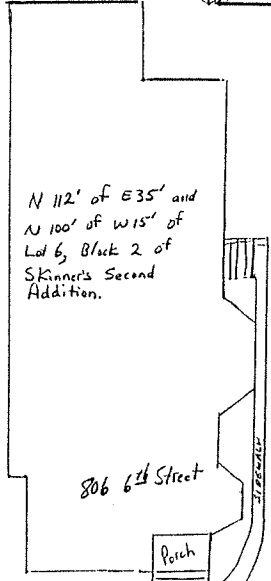 N 112' of E 35' and
N 100' of W 15' of
Lot 6, Block 2 of
Skinner's Second
Addition.
SIDEWALK
806 6th Street
Porch